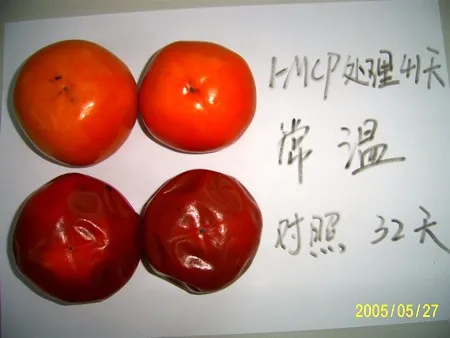 1-MCP处理41天
常温
对照 32天
2005/05/27